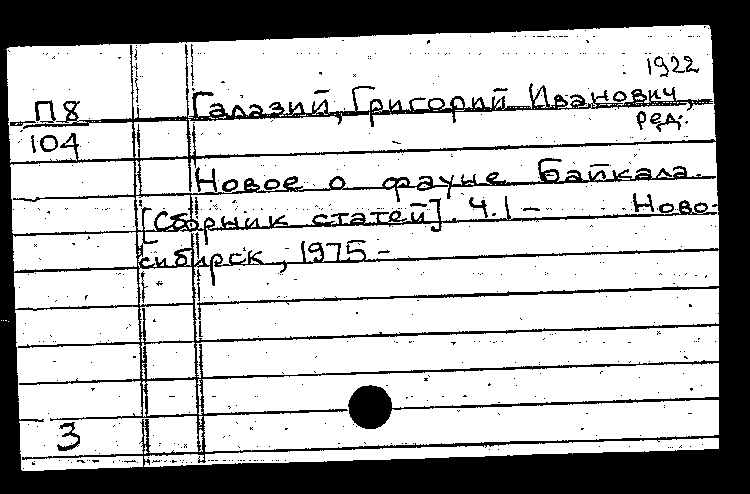 1922
П8 Галазий, Григорий Иванович,
ред.
104
Новое о фауне Байкала.
[Сборник статей]. Ч.1 – Ново-
сибирск, 1975 –
3